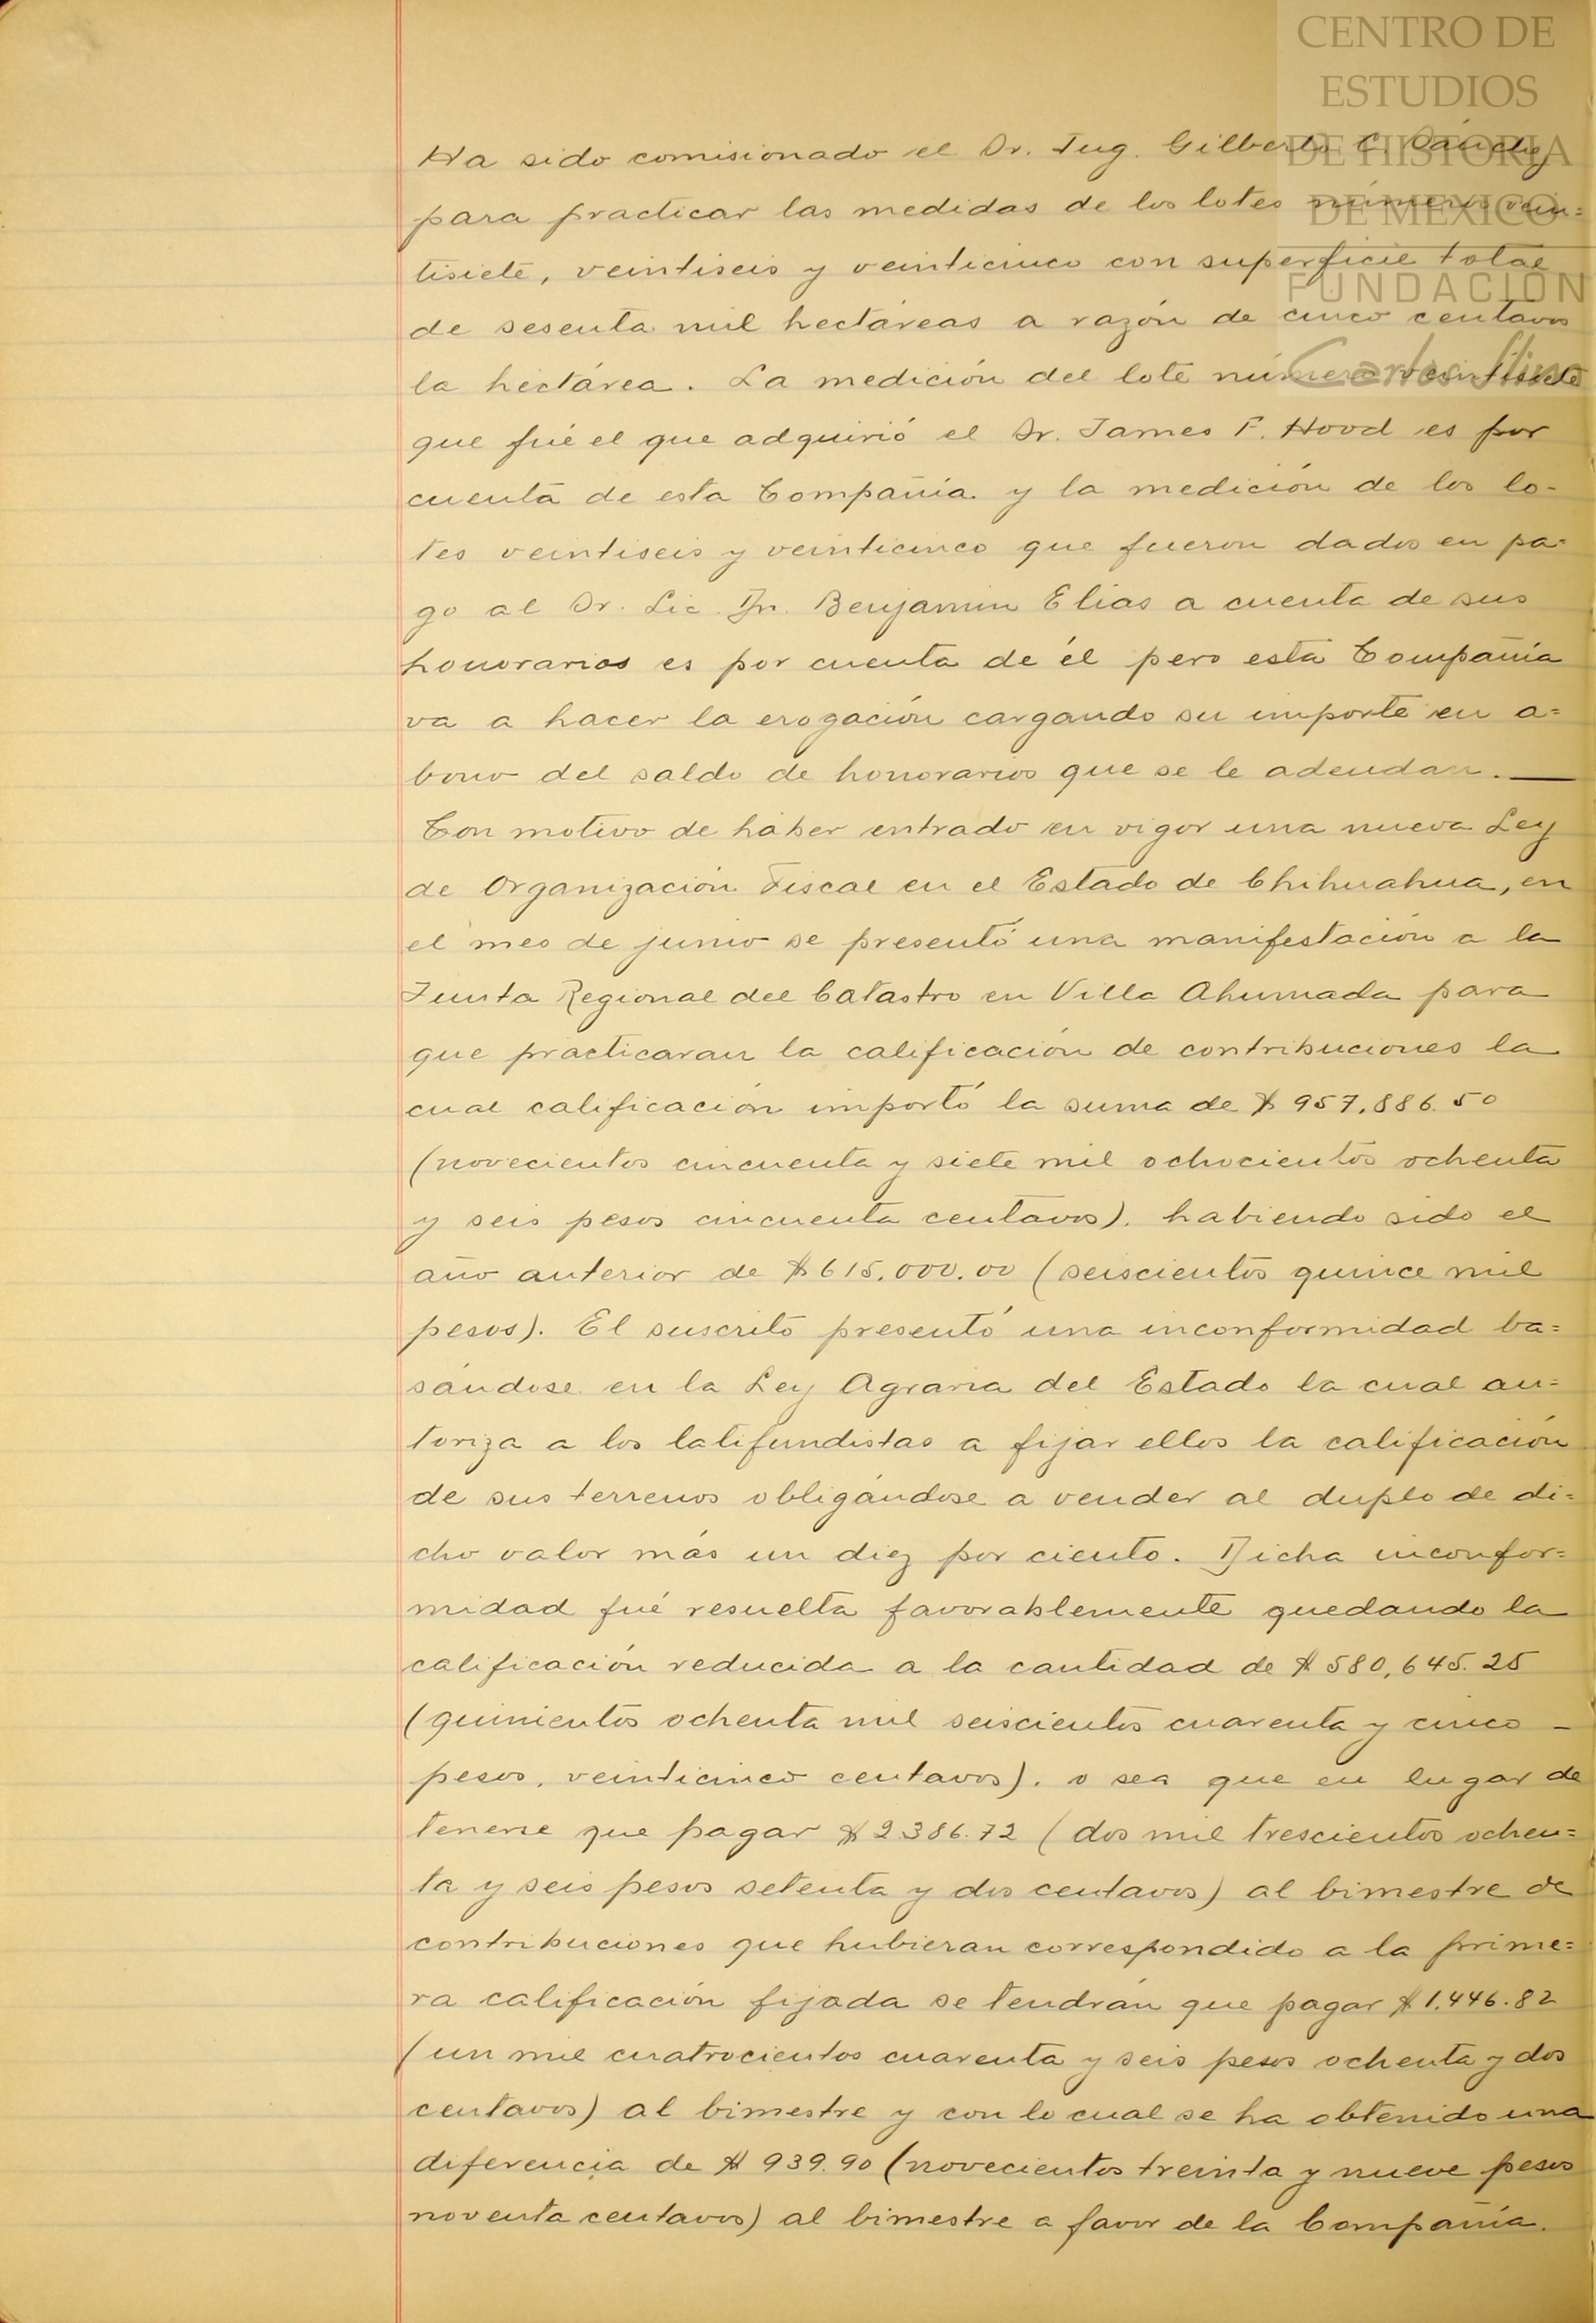 CENTRO DE
ESTUDIOS
DE HISTORIA
DE MEXICO
FUNDACIÓN
Carlos Slim
Ha sido comisionado el Sr. Ing. Gilberto C. Sánchez
para practicar las medidas de los lotes números vein=
tisiete, veintiseis y veinticinco con superficie total
de sesenta mil hectáreas a razón de cinco centavos
la hectárea. La medición del lote número veintisiete
que fué el que adquirió el Sr. James F. Hood es por
cuenta de esta Compañía y la medición de los lo-
tes veintiseis y veinticinco que fueron dados en pa-
go al Sr. Lic. Dn. Benjamin Elias a cuenta de sus
honorarios es por cuenta de él pero esta Compañía
va a hacer la erogación cargando su importe en a=
bono del saldo de honorarios que se le adeudan.
Con motivo de haber entrado en vigor una nueva Ley
de Organización Fiscal en el Estado de Chihuahua, en
el mes de junio se presentó una manifestación a la
Junta Regional del Catastro en Villa Ahumada para
que practicaran la calificación de contribuciones la
cual calificación importó la suma de $957,886.50
(novecientos cincuenta y siete mil ochocientos ochenta
y seis pesos cincuenta centavos). habiendo sido el
año anterior de $615,000.00 (seiscientos quince mil
pesos). El suscrito presentó una inconformidad ba=
sándose en la Ley Agraria del Estado la cual au=
toriza a los latifundistas a fijar ellos la calificación
de sus terrenos obligándose a vender al duplo de di=
cho valor más un diez por ciento. Dicha inconfor=
midad fué resuelta favorablemente quedando la
calificación reducida a la cantidad de $580,645.25
(quinientos ochenta mil seiscientos cuarenta y cinco -
pesos, veinticinco centavos). o sea que en lugar de
tenerse que pagar $2386.72 (dos mil trescientos ochen=
ta y seis pesos setenta y dos centavos) al bimestre de
contribuciones que hubieran correspondido a la prime=
ra calificación fijada se tendrán que pagar $1,446.82
(un mil cuatrocientos cuarenta y seis pesos ochenta y dos
centavos) al bimestre y con lo cual se ha obtenido una
diferencia de $939.90 (novecientos treinta y nueve pesos
noventa centavos) al bimestre a favor de la Compañía.